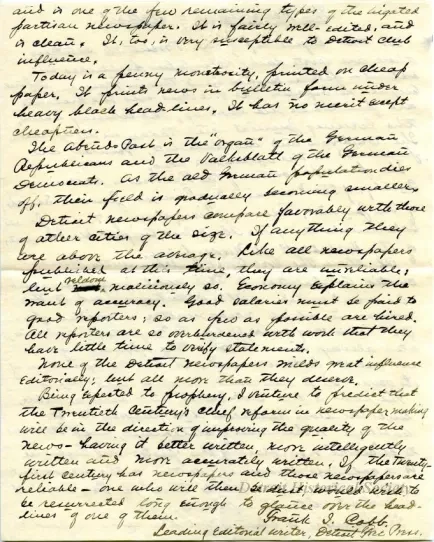 and is one of the few remaining types of the bigoted
partisan newspaper. It is fairly well-edited, and
is clean. It, too, is very susceptible to Detroit club
influence.
Today is a penny monstrosity, printed on cheap
paper. It prints news in bulletin form under
heavy black head-lines. It has no merit except
cheapness.
The Abend-Post is the "organ" of the German
Republicans and the Volksblatt of the German
Democrats. As the old German population dies
off, their field is gradually becoming smaller.
Detroit newspapers compare favorably with those
of other cities of the size. If anything they
are above the average. Like all newspapers
published at this time, they are unreliable;
but seldom maliciously so. Economy explains the
want of accuracy. Good salaries must be paid to
good reporters; so as few as possible are hired.
All reporters are so overburdened with work that they
have little time to verify statements.
None of the Detroit newspapers wields most influence
Editorially; but all more than they deserve.
Being expected to prophesy, I venture to predict that
the Twentieth Century's chief reform in newspaper making
will be in the direction of improving the quality of the
news - having it better written, more intelligently
written and more accurately written. If the Twenty-
first century has newspapers and those newspapers are
reliable - one who will then be dust would wish to
be resurrected long enough to glance over the head-
lines of one of them.
Frank I. Cobb,
Leading Editorial Writer, Detroit Free Press.